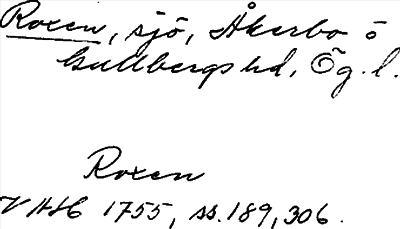 Roxen, sjö, Åkerbo o
Gullbergs hd, Ög. l.
Roxen
VAH 1755, ss. 189, 306.